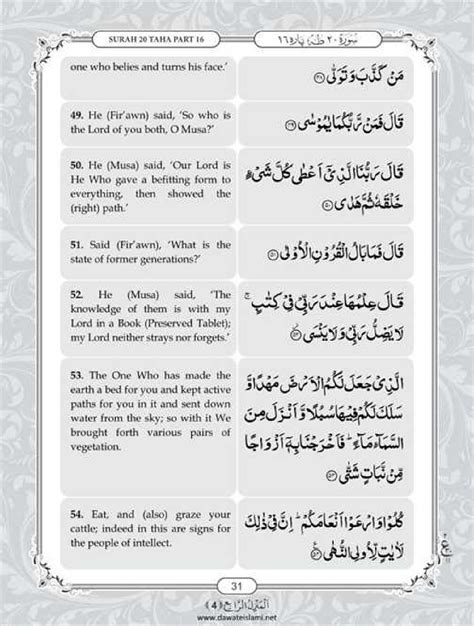 SURAH 20 TAHA PART 16
سُوْرَة ٢٠ طٰهٰ، پارہ ١٦
one who belies and turns his face.’
مَنْ كَذَّبَ وَتَوَلّٰى ﴿۴۸﴾
49. He (Fir’awn) said, ‘So who is
the Lord of you both, O Musa?’
قَالَ فَمَنْ رَّبُّكُمَا يٰمُوْسٰى ﴿۴۹﴾
50. He (Musa) said, ‘Our Lord is
He Who gave a befitting form to
everything, then showed the
(right) path.’
قَالَ رَبُّنَا الَّذِيْۤ اَعْطٰى كُلَّ شَيْءٍ
خَلْقَهٗ ثُمَّ هَدٰى ﴿۵۰﴾
51. Said (Fir’awn), ‘What is the
state of former generations?’
قَالَ فَمَا بَالُ الْقُرُوْنِ الْاُوْلٰى ﴿۵۱﴾
52. He (Musa) said, ‘The
knowledge of them is with my
Lord in a Book (Preserved Tablet);
my Lord neither strays nor forgets.’
قَالَ عِلْمُهَا عِنْدَ رَبِّيْ فِيْ كِتٰبٍ ۚ
لَا يَضِلُّ رَبِّيْ وَلَا يَنْسَى ﴿۵۲﴾
53. The One Who has made the
earth a bed for you and kept active
paths for you in it and sent down
water from the sky; so with it We
brought forth various pairs of
vegetation.
الَّذِيْ جَعَلَ لَكُمُ الْاَرْضَ مَهْدًا وَّ
سَلَكَ لَكُمْ فِيْهَا سُبُلًا وَّ اَنْزَلَ مِنَ
السَّمَآءِ مَآءً ؕ فَاَخْرَجْنَا بِهٖۤ اَزْوَاجًا
مِّنْ نَّبَاتٍ شَتّٰى ﴿۵۳﴾
54. Eat, and (also) graze your
cattle; indeed in this are signs for
the people of intellect.
كُلُوْا وَارْعَوْا اَنْعَامَكُمْ ؕ اِنَّ فِيْ ذٰلِكَ
لَاٰيٰتٍ لِّاُولِي النُّهٰى ﴿۵۴﴾
31
اَلْمَنْزِلُ الرَّابِع ﴿4﴾
www.dawateislami.net